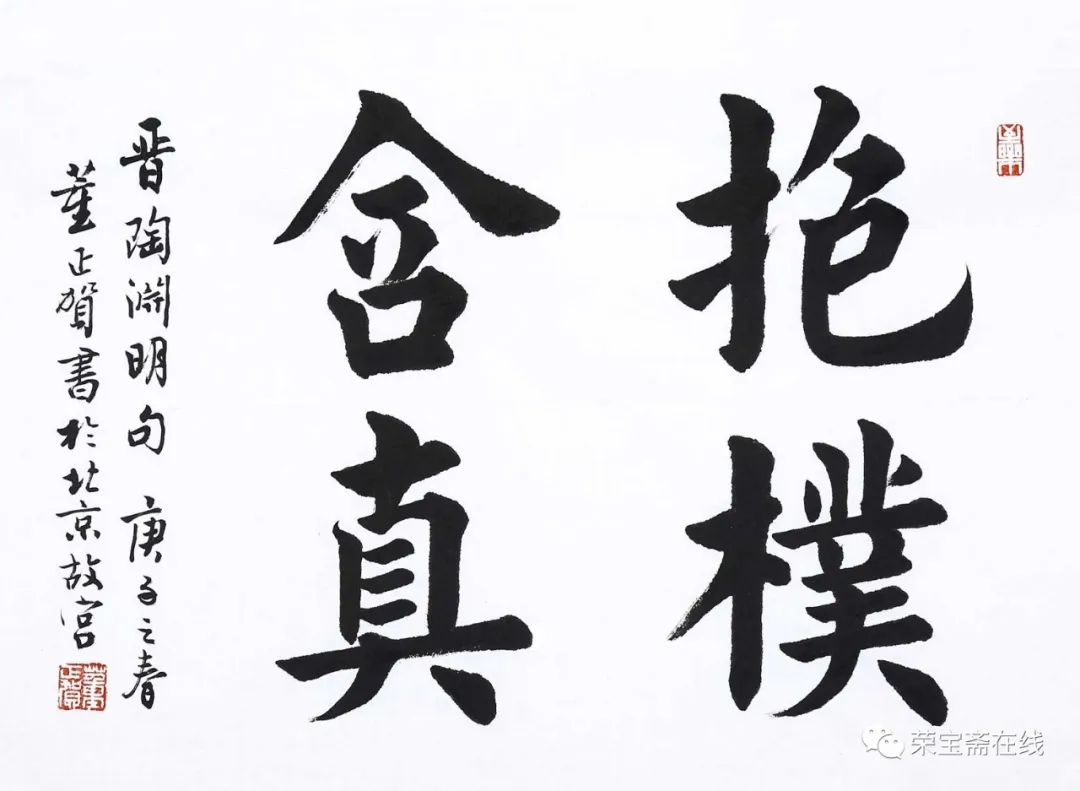 抱樸
含真
晋陶淵明句 庚子之春
董正賀書於北京故宮
董正賀
荣宝斋在线